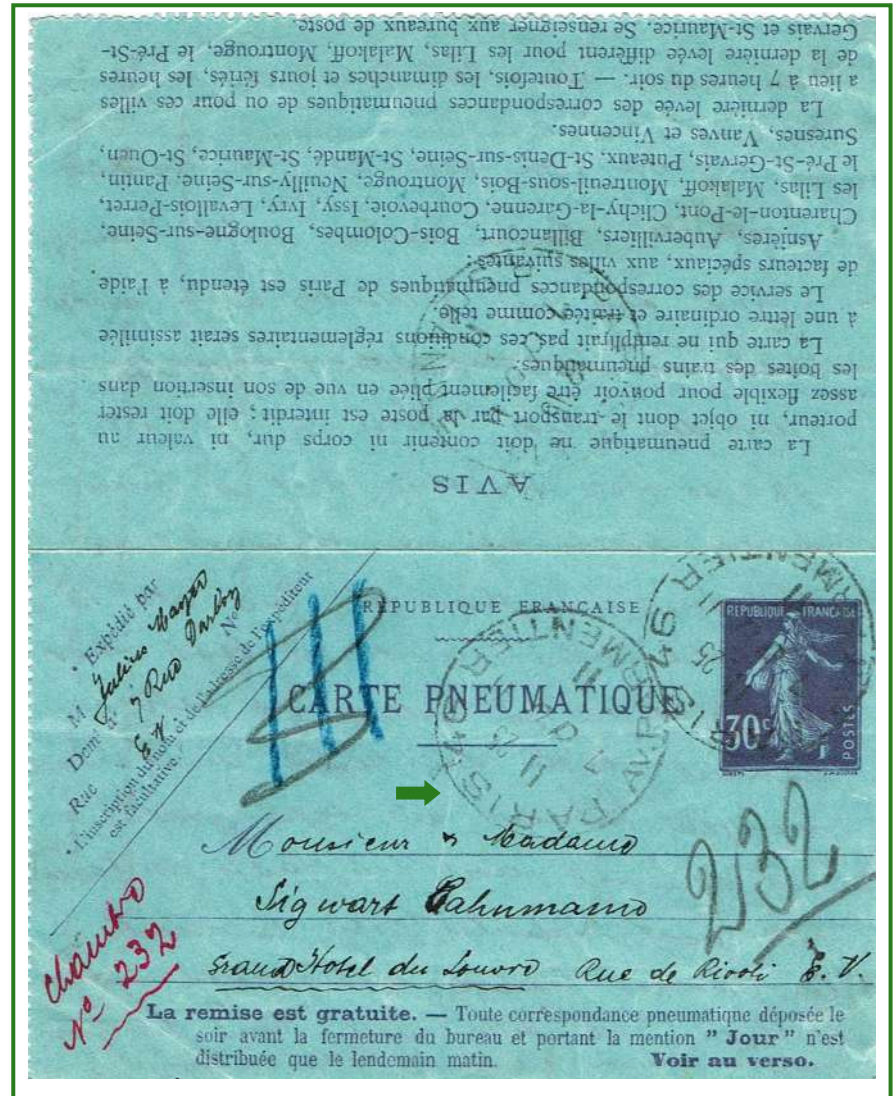 AVIS
La carte pneumatique ne doit contenir ni corps dur, ni valeur au
porteur, ni objet dont le transport par la poste est interdit; elle doit rester
assez flexible pour pouvoir être facilement pliée en vue de son insertion dans
les boîtes des trains pneumatiques.
La carte qui ne remplirait pas ces conditions réglementaires serait assimilée
à une lettre ordinaire et traitée comme telle.
Le service des correspondances pneumatiques de Paris est étendu, à l'aide
de facteurs spéciaux, aux villes suivantes:
Asnières, Aubervilliers, Billancourt, Bois-Colombes, Boulogne-sur-Seine,
Charenton-le-Pont, Clichy-la-Garenne, Courbevoie, Issy, Ivry, Levallois-Perret,
les Lilas, Malakoff, Montreuil-sous-Bois, Montrouge, Neuilly-sur-Seine, Pantin,
le Pré-St-Gervais, Puteaux, St-Denis-sur-Seine, St-Mandé, St-Maurice, St-Ouen,
Suresnes, Vanves et Vincennes.
La dernière levée des correspondances pneumatiques de ou pour ces villes
a lieu à 7 heures du soir. — Toutefois, les dimanches et jours fériés, les heures
de la dernière levée diffèrent pour les Lilas, Malakoff, Montrouge, le Pré-St-
Gervais et St-Maurice. Se renseigner aux bureaux de poste.
Expédié par
M Julius
Domt à 7 Rue Darboy
Rue E.V. No
L'inscription du nom et de l'adresse de l'expéditeur
est facultative.
RÉPUBLIQUE FRANÇAISE
CARTE PNEUMATIQUE
REPUBLIQUE FRANÇAISE
30c
POSTES
PARIS 94
AV. PARMENTIER
PARIS 94
AV. PARMENTIER
Monsieur & Madame
Sigwart Cahnmann
Grand Hotel du Louvre Rue de Rivoli E.V.
232
Chambre
No 232
La remise est gratuite. — Toute correspondance pneumatique déposée le
soir avant la fermeture du bureau et portant la mention " Jour " n'est
distribuée que le lendemain matin. Voir au verso.